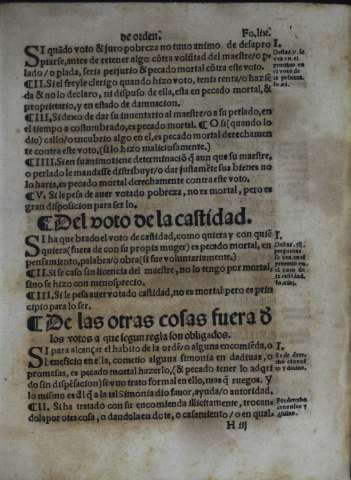 de orden. Fo.lix.
SI quãdo voto & juro pobreza no tuuo animo de desapro
piarse, antes de retener algo côtra volũtad del maestre/o p
lado/o plada, seria perjurio & pecado mortal côtra este voto.
¶II. Si el freyle clerigo quando hizo voto, tenia renta/o haziẽ
da & no lo declaro, ni dispuso de ella, esta en pecado mortal, &
proprietario, y en estado de damnacion.
¶III. Si dexo de dar su inuentario al maestre/o a su perlado, en
el tiempo acostumbrado, es pecado mortal. ¶O si (quando lo
dio) callo/o encubrio algo en el, es pecado mortal derechamen
te contra este voto, (si lo hizo maliciosamente.)
¶IIII. Si en su animo tiene determinaciõ q̃ aun que su maestre,
o perlado le mandasse distribuyr/o dar justamẽte sus bienes no
lo haria, es pecado mortal derechamente contra este voto.
¶V. Si le pesa de auer votado pobreza, no es mortal, pero es
gran disposicion para ser lo.
¶Del voto de la castidad.
SI ha quebrado el voto de castidad, como quiera y con quiẽ
quiera (fuera de con su propia muger) es pecado mortal, en
pensamiento, palabra/o obra (si fue voluntariamente.)
¶II. Si se caso sin licencia del maestre, no lo tengo por mortal,
sino se hizo con menosprecio.
¶III. Si le pesa auer votado castidad, no es mortal pero es prin
cipio para lo ser.
¶De las otras cosas fuera d̃
los votos a que segun regla son obligados.
SI para alcançar el habito de la ordẽ o alguna encomiẽda, o
beneficio en ella, cometio alguna simonia en dadiuas, o
promesas, es pecado mortal hazerlo, (& pecado tener lo adqri
do sin dispẽsacion) si vuo trato formal en ello, mas q̃ ruegos. y
lo mismo es dl q̃ a la tal Simonia dio fauor, ayuda/o autoridad.
¶II. Si ha tratado con su encomienda illicitamente, trocan
dola por otra cosa, o dandola en dote, o casamiento/o en qual
H iij